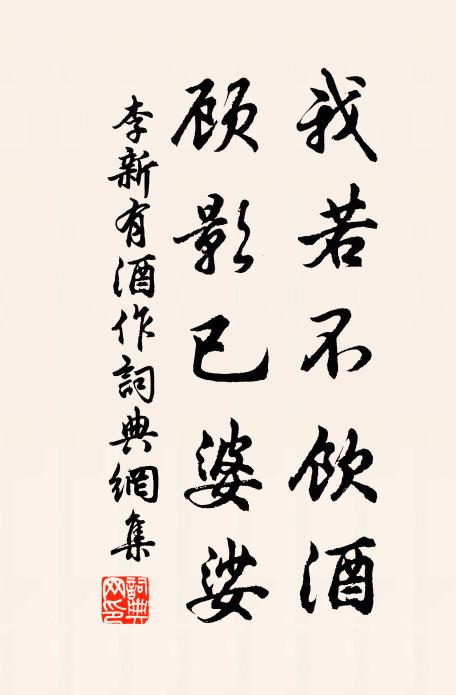 我若不飲酒
顧影已婆娑
李新有酒作詞典網集
詞典網印